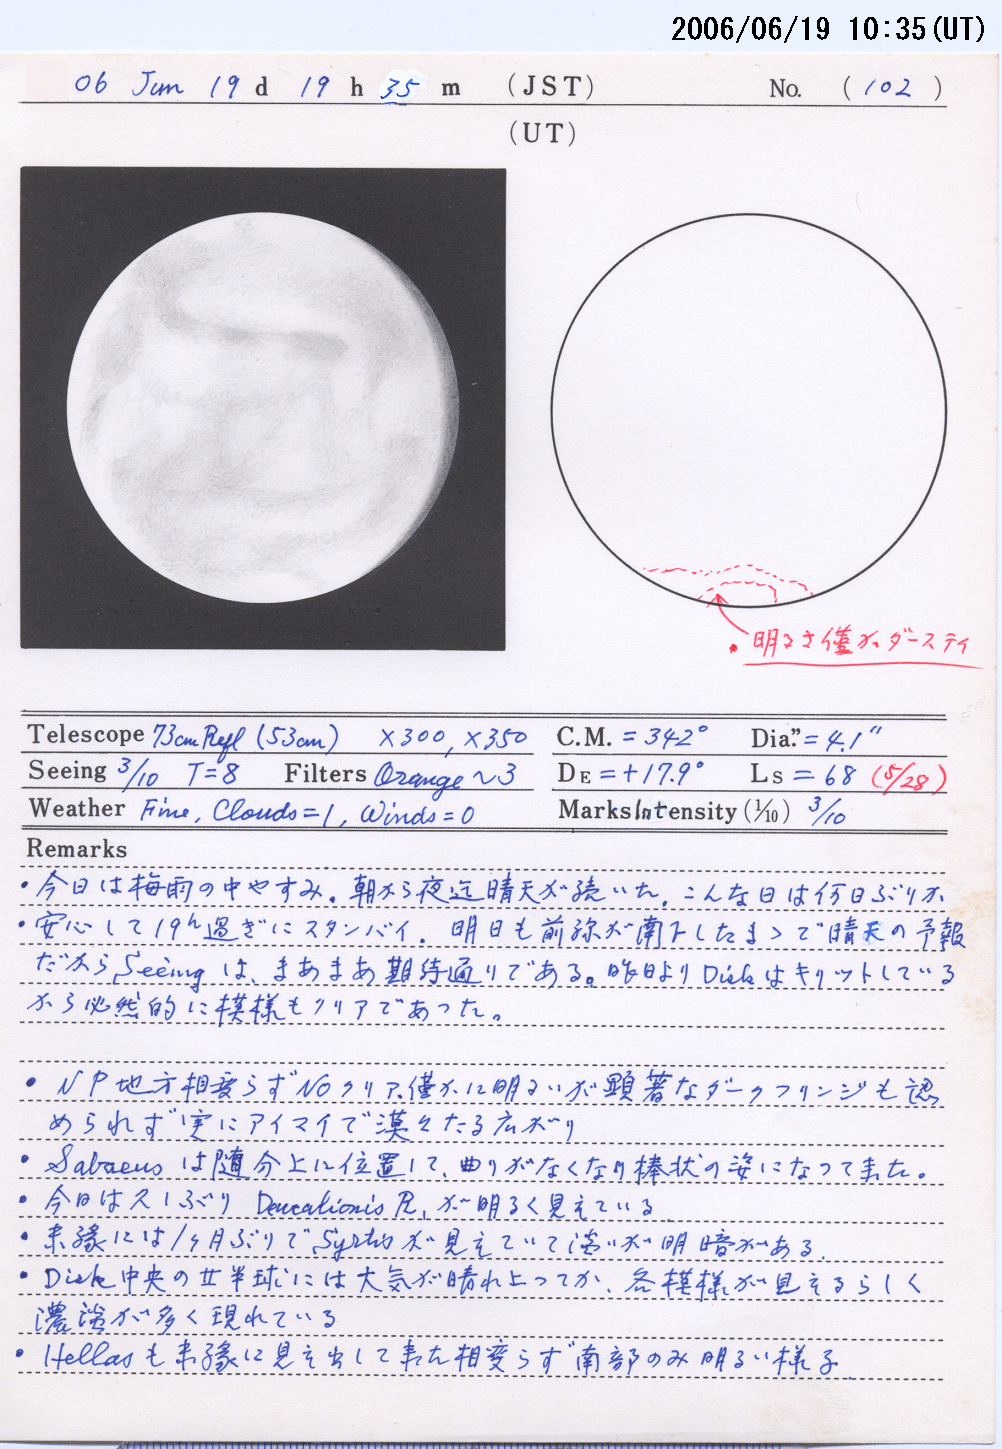 2006/06/19 10:35(UT)
06 Jun 19 d 19 h 35 m (JST) No. (102)
(UT)
・明るさ僅か、ダースティ
Telescope 73cm Refl (53cm) ×300, ×350
C.M. = 342° Dia." = 4.1"
Seeing 3/10 T=8 Filters Orange ~3
DE = +17.9° LS = 68 (5/28)
Weather Fine, Clouds=1, Winds=0
Marks Intensity (1/10) 3/10
Remarks
・今日は梅雨の中やすみ。朝から夜迄晴天が続いた。こんな日は何日ぶりか
・安心して19h過ぎにスタンバイ. 明日も前線が南下したまゝで晴天の予報
だから Seeing は、まあまあ期待通りである。昨日より Disk はキリットしている
から必然的に模様もクリアであった。
・NP地方相変らず NO クリア.僅かに明るいが顕著なダークフリンジも認
められず実にアイマイで漠々たる広がり
・Sabaeus は随分上に位置して、曲りがなくなり棒状の姿になって来た。
・今日は久しぶり Deucalionis R. が明るく見えている
・東縁には1ヶ月ぶりで Syrtis が見えていて淡いが明暗がある.
・Disk 中央の北半球には大気が晴れ上ってか、各模様が見えるらしく
濃淡が多く現れている
・Hellas も東縁に見え出して来た相変らず南部のみ明るい様子